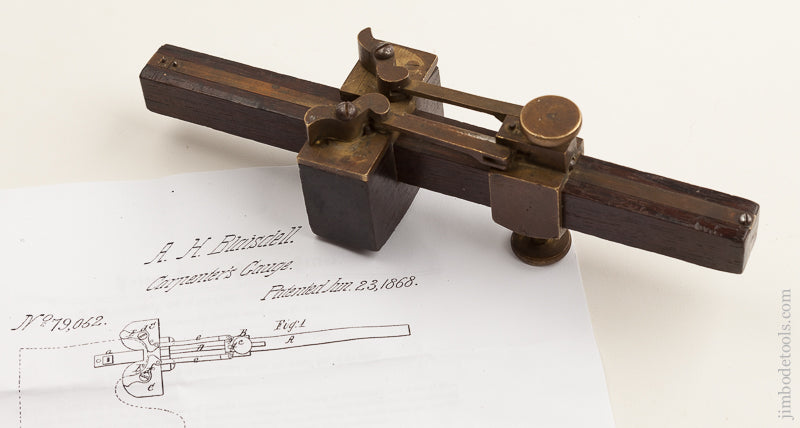 A. H. Blaisdell.
Carpenter's Gauge.
Patented Jun. 23, 1868.
No 79,062.
Fig: 1
jimbodetools.com